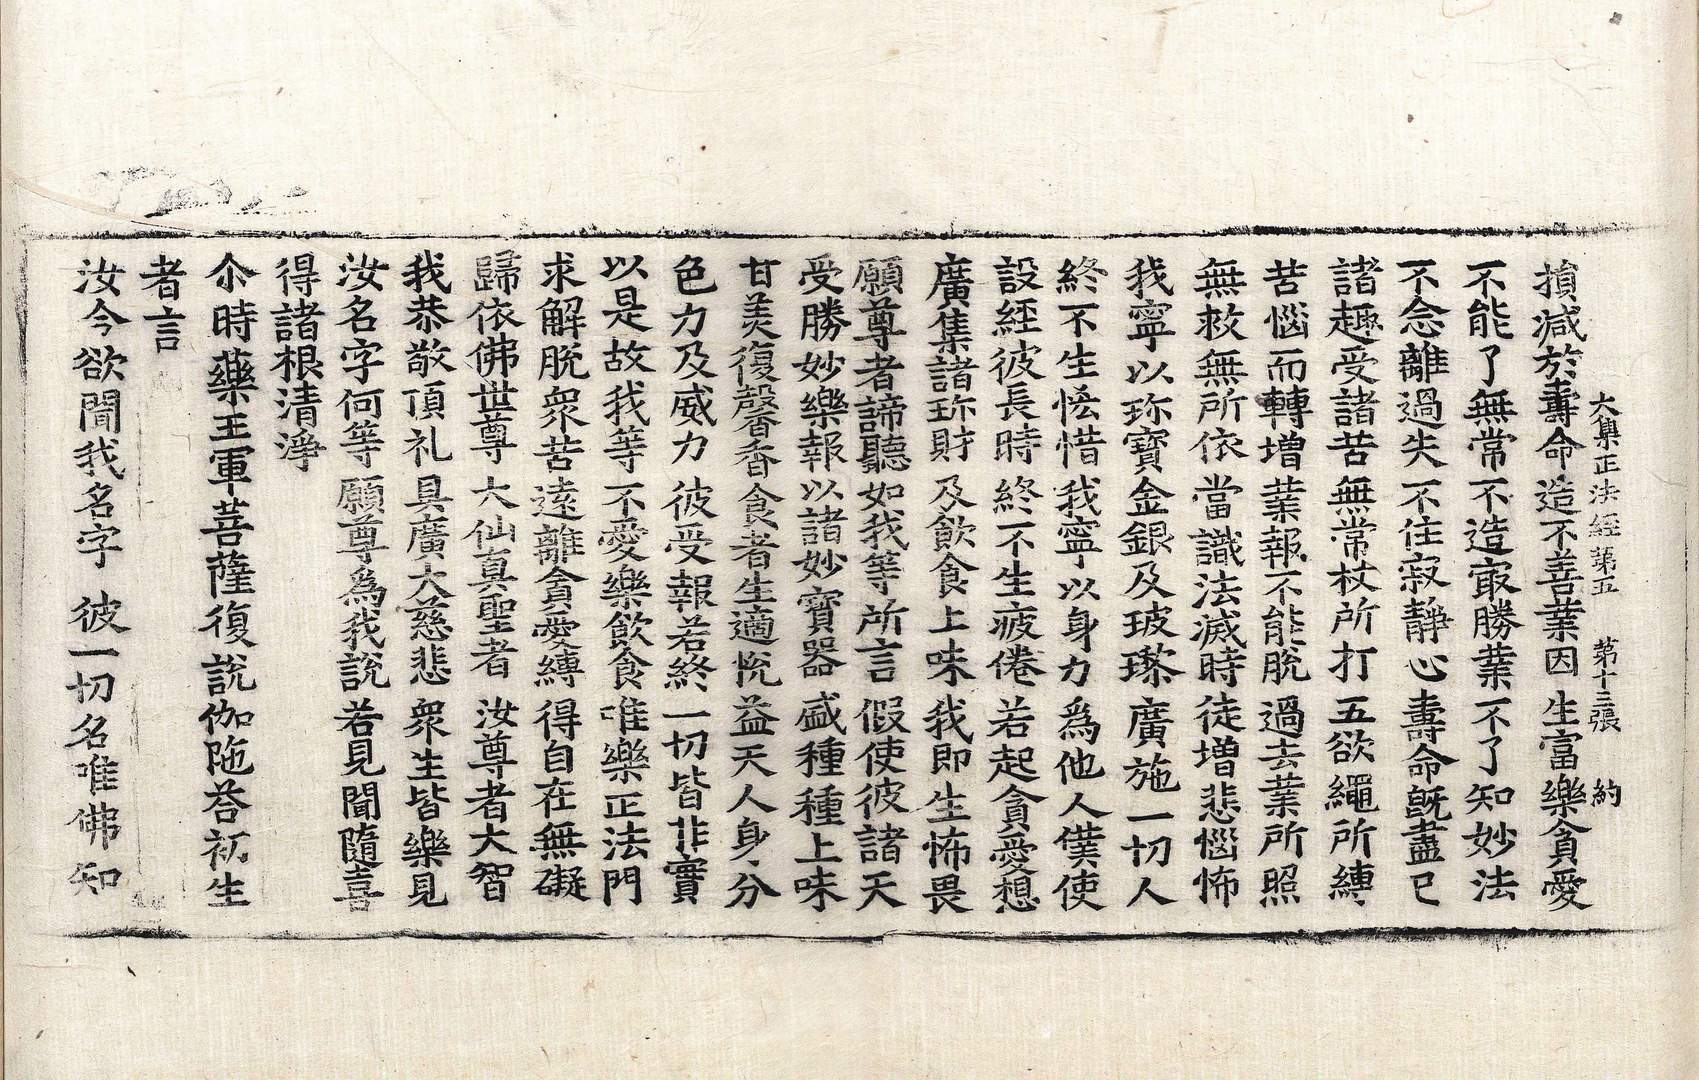 大集正法經第五　第十三張　約
損減於壽命　造不善業因　生富樂貪愛
不能了無常　不造冣勝業　不了知妙法
不念離過失　不住寂静心　壽命旣盡已
諸趣受諸苦　無常杖所打　五欲繩所縛
苦惱而轉增　業報不能脫　過去業所照
無救無所依　當識法滅時　徒增悲惱怖
我寧以珎寶　金銀及玻瓈　廣施一切人
終不生恡惜　我寧以身力　為他人僕使
設經彼長時　終不生疲倦　若起貪愛想
廣集諸珎財　及飲食上味　我即生怖畏
願尊者諦聽　如我等所言　假使彼諸天
受勝妙樂報　以諸妙寶器　盛種種上味
甘美復馨香　食者生適悅　益天人身分
色力及威力　彼受報若終　一切皆非實
以是故我等　不愛樂飲食　唯樂正法門
求解脫衆苦　遠離貪愛縛　得自在無礙
歸依佛世尊　大仙真聖者　汝尊者大智
我恭敬頂礼　具廣大慈悲　衆生皆樂見
汝名字何等　願尊爲我說　若見聞隨喜
得諸根清淨
尒時藥王軍菩薩復說伽陁荅初生
者言
汝今欲聞我名字　彼一切名唯佛知